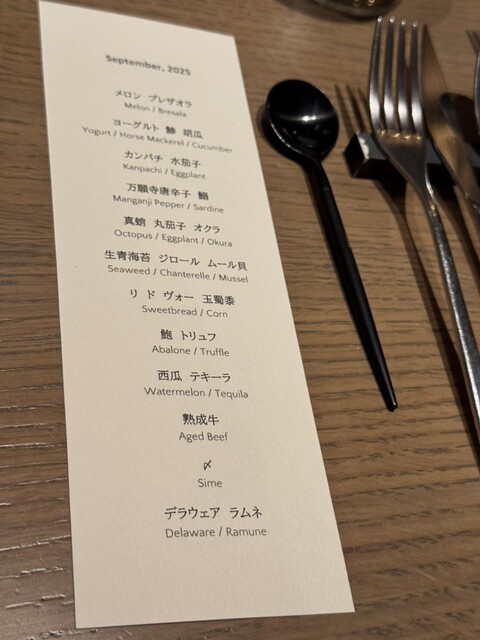 September, 2025
メロン ブレザオラ
Melon / Bresala
ヨーグルト 鯵 胡瓜
Yogurt / Horse Mackerel / Cucumber
カンパチ 水茄子
Kanpachi / Eggplant
万願寺唐辛子 鰯
Manganji Pepper / Sardine
真蛸 丸茄子 オクラ
Octopus / Eggplant / Okura
生青海苔 ジロール ムール貝
Seaweed / Chanterelle / Mussel
リ ド ヴォー 玉蜀黍
Sweetbread / Corn
鮑 トリュフ
Abalone / Truffle
西瓜 テキーラ
Watermelon / Tequila
熟成牛
Aged Beef
〆
Sime
デラウェア ラムネ
Delaware / Ramune